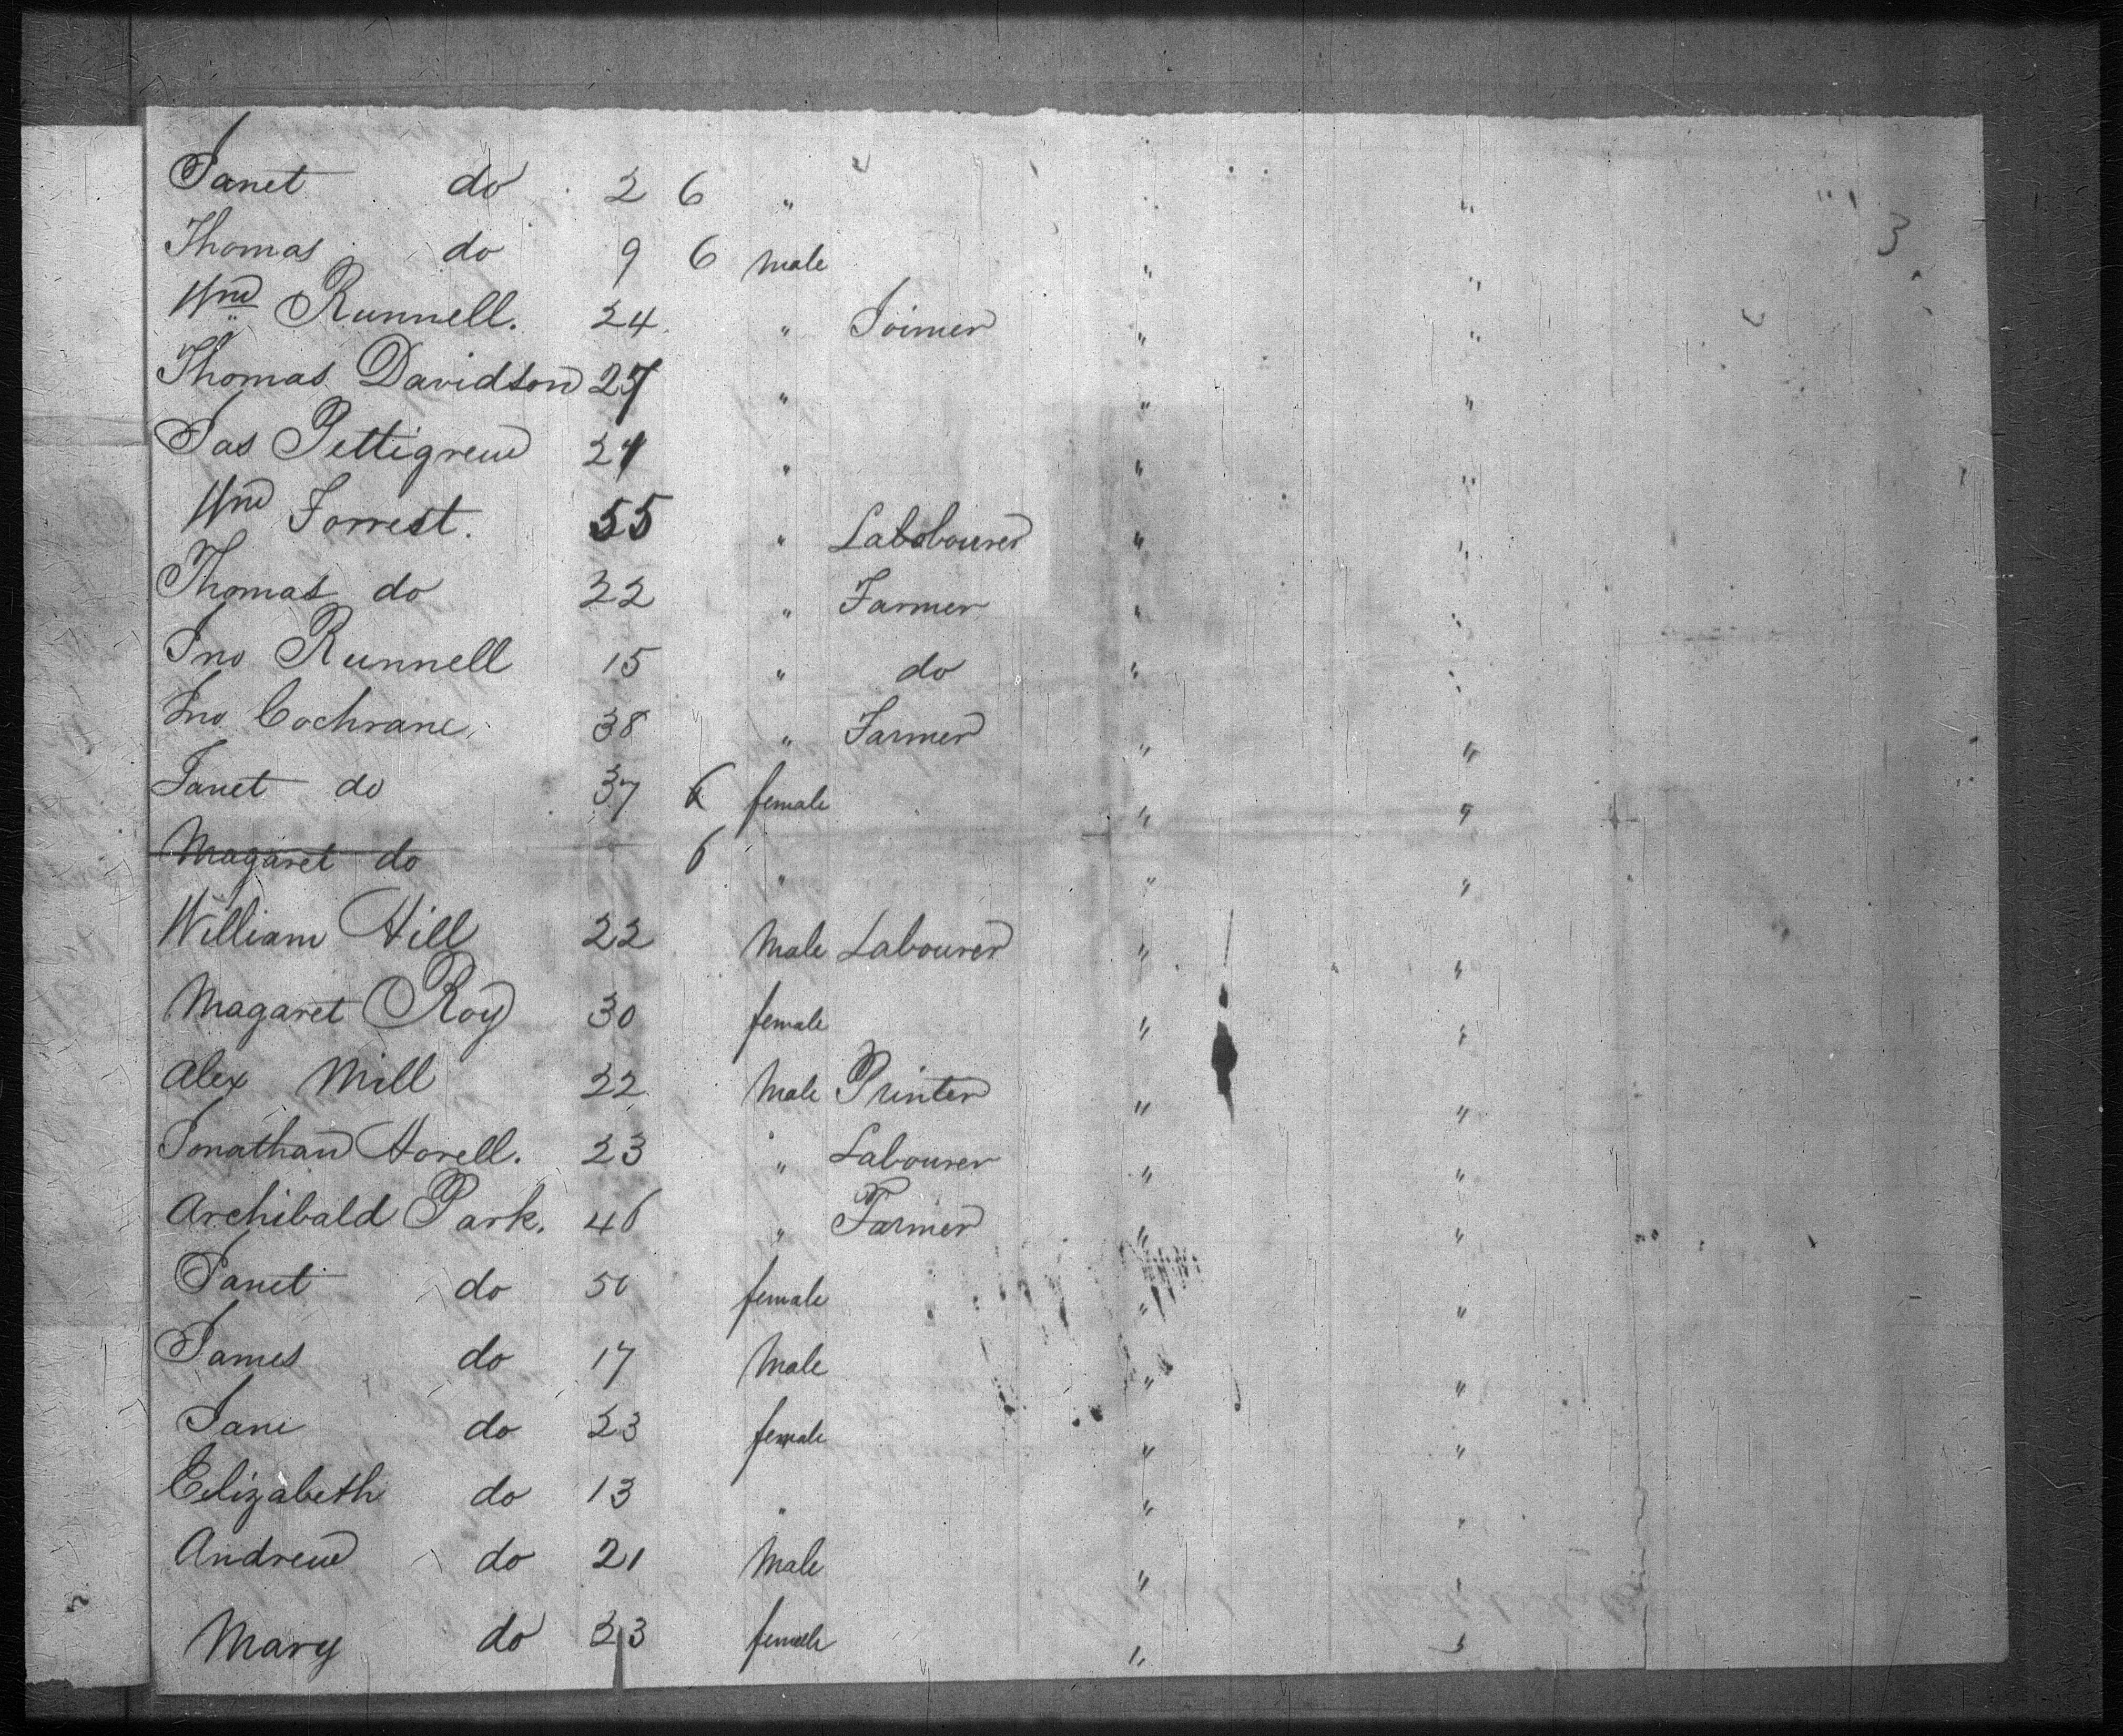 Janet do 2 6 " " "
Thomas do 9 6 male " "
Wm Runnell. 24 " Joiner " "
Thomas Davidson 27 " " "
Jas Pettigrew 24 " " "
Wm Forrest. 55 " Labobourer " "
Thomas do 22 " Farmer " "
Jno Runnell 15 " do " "
Jno Cochrane 38 " Farmer " "
Janet do 37 female " "
Magaret do 6 " " "
William Hill 22 Male Labourer " "
Magaret Roy 30 female " "
Alex Mill 22 Male Printer " "
Jonathan Horell. 23 " Labourer " "
Archibald Park. 46 " Farmer " "
Janet do 50 female " "
James do 17 Male " "
Jane do 23 female " "
Elizabeth do 13 " " "
Andrew do 21 Male " "
Mary do 23 female " "
3